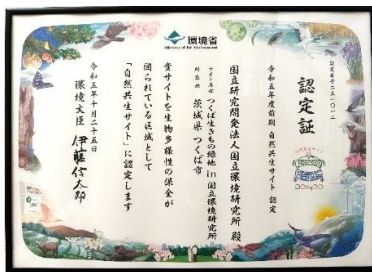 環境省
Ministry of the Environment
認定証
令和五年度前期 自然共生サイト 認定
国立研究開発法人国立環境研究所 殿
サイト名称 つくば生きもの緑地 in 国立環境研究所
所在地 茨城県 つくば市
貴サイトを生物多様性の保全が
図られている区域として
「自然共生サイト」に認定します
令和五年十月二十五日
環境大臣 伊藤信太郎